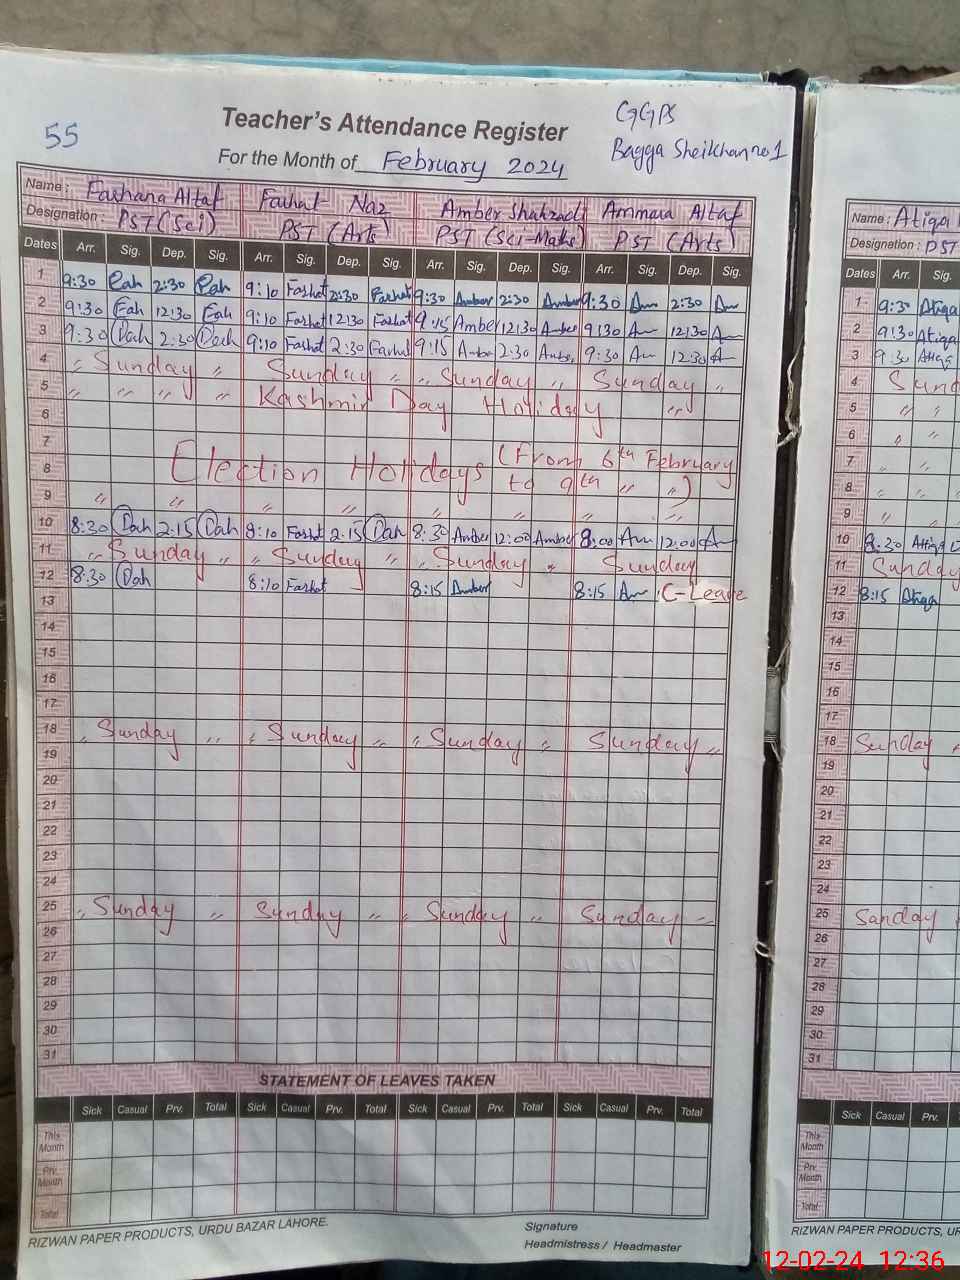 55
Teacher's Attendance Register
GGPS
For the Month of February 2024
Bagga Sheikhan no 1
Name: Farhana Altaf Farhat Naz Amber Shahzadi Ammara Altaf
Designation: PST (Sci) PST (Arts) PST (Sci-Maths) PST (Arts)
Dates Arr. Sig. Dep. Sig. Arr. Sig. Dep. Sig. Arr. Sig. Dep. Sig. Arr. Sig. Dep. Sig.
1 9:30 2:30 9:10 Farhat 2:30 Farhat 9:30 Amber 2:30 Amber 9:30 Am 2:30
2 9:30 12:30 9:10 Farhat 12:30 Farhat 9:15 Amber 12:30 Amber 9:30 Am 12:30
3 9:30 2:30 9:10 Farhat 2:30 Farhat 9:15 Amber 2:30 Amber 9:30 Am 12:30
4 " Sunday " Sunday " " Sunday " Sunday "
5 " " " " Kashmir Day Holiday "
6
7
8 Election Holidays (From 6th February to 9th " ")
9 " " " " " "
10 8:30 2:15 8:10 Farhat 2:15 8:30 Amber 12:00 Amber 8:00 Am 12:00
11 " Sunday " " Sunday " Sunday " Sunday
12 8:30 8:10 Farhat 8:15 Amber 8:15 Am C-Leave
13
14
15
16
17
18 " Sunday " " Sunday " " Sunday " Sunday "
19
20
21
22
23
24
25 " Sunday " Sunday " " Sunday " Sunday "
26
27
28
29
30
31
STATEMENT OF LEAVES TAKEN
Sick Casual Prv. Total Sick Casual Prv. Total Sick Casual Prv. Total Sick Casual Prv. Total
This Month
Prv. Month
Total
RIZWAN PAPER PRODUCTS, URDU BAZAR LAHORE.
Signature
Headmistress / Headmaster
Name: Atiqa
Designation: PST
Dates Arr. Sig.
1 9:30 Atiqa
2 9:30 Atiqa
3 9:30 Atiqa
4 Sund
5 " "
6 " "
7 " "
8 " "
9 " "
10 8:30 Atiqa
11 Sunday
12 8:15 Atiqa
13
14
15
16
17
18 Sunday
19
20
21
22
23
24
25 Sunday
26
27
28
29
30
31
Sick Casual Prv.
This Month
Prv. Month
Total
RIZWAN PAPER PRODUCTS, UR
12-02-24 12:36